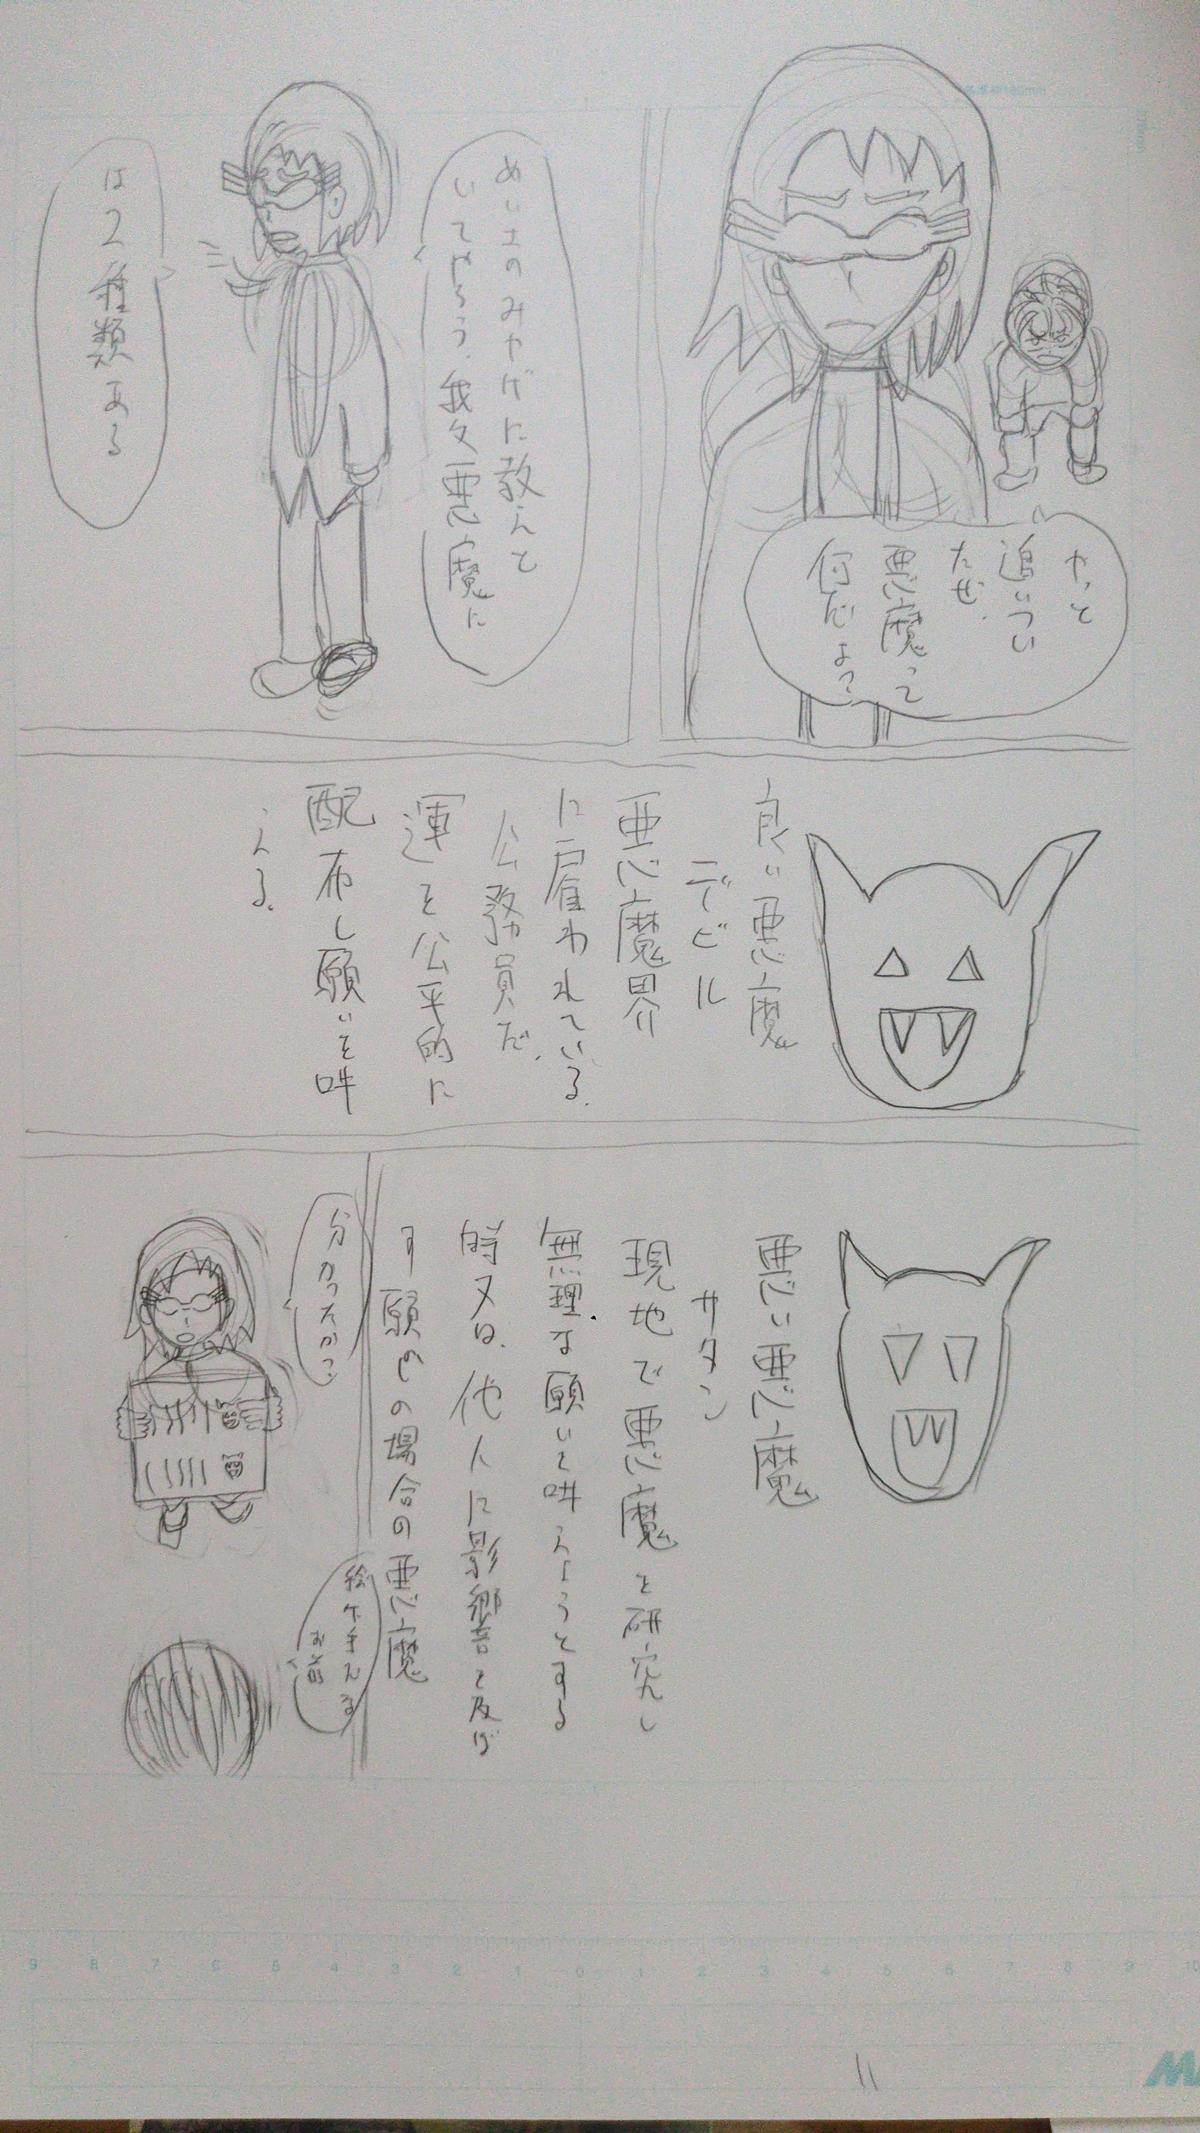 やっと
追いつい
たぜ、
悪魔って
何だよ?
めい土のみやげに教えと
いてやろう、我々悪魔に
は2種類ある
良い悪魔
デビル
悪魔界
に雇われている。
公務員だ、
運を公平的に
配布し願いを叶
える。
悪い悪魔
サタン
現地で悪魔を研究し
無理な願いを叶えようとする
時又は、他人に影響を及ぼ
す願いの場合の悪魔
分かったか?
お前
9 8 7 6 5 4 3 2 1 0 1 2 3 4 5 6 7 8 9 10
11